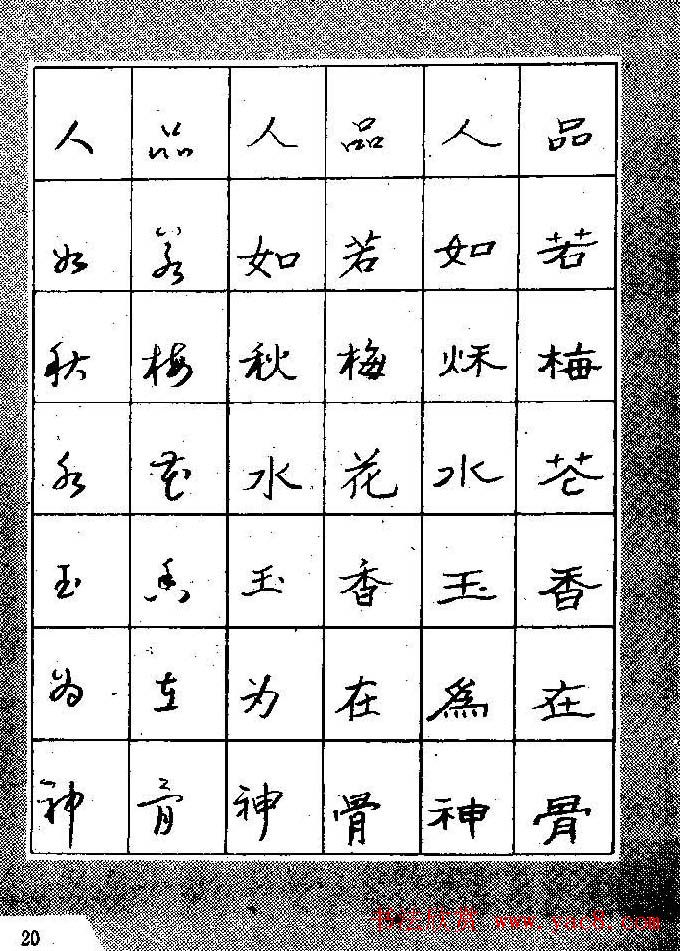 品若梅花香在骨
人如秌水玉為神
品若梅花香在骨
人如秋水玉为神
品若梅花香在骨
人如秋水玉为神
20
www.yac8.com